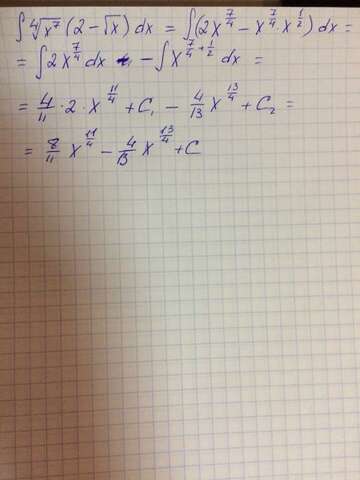 ∫ ⁴√(x⁷) (2 - √x) dx = ∫(2x^(7/4) - x^(7/4) x^(1/2)) dx =
= ∫ 2x^(7/4) dx - ∫ x^(7/4 + 1/2) dx =
= 4/11 · 2 · x^(11/4) + C₁ - 4/13 x^(13/4) + C₂ =
= 8/11 x^(11/4) - 4/13 x^(13/4) + C